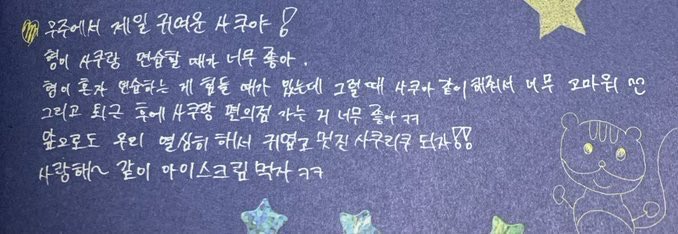 우주에서 제일 귀여운 사쿠야!
형이 사쿠랑 연습할 때가 너무 좋아.
형이 혼자 연습하는 게 힘들 때가 있는데 그럴 때 사쿠야 같이 해줘서 너무 고마워
그리고 퇴근 후에 사쿠랑 편의점 가는 거 너무 좋아 ㅋㅋ
앞으로도 우리 열심히 해서 귀엽고 멋진 사쿠리쿠 되자!!
사랑해~ 같이 아이스크림 먹자 ㅋㅋ